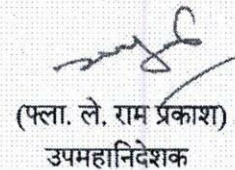 (फ्ला. ले. राम प्रकाश)
उपमहानिदेशक